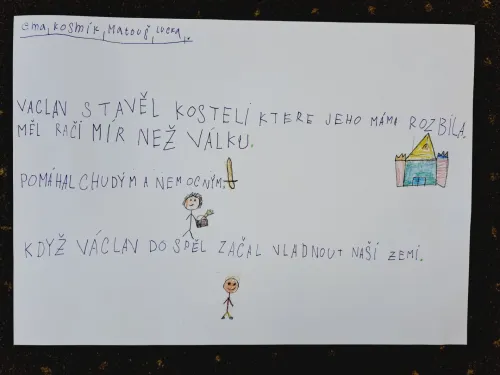 Ema, Kosmík, Matouš, Lucka,
VACLAV STAVĚL KOSTELI KTERE JEHO MÁMA ROZBÍLA.
MĚL RAČI MÍR NEŽ VÁLKU.
POMÁHAL CHUDÝM A NEMOCNÝM.
KDYŽ VÁCLAV DOSPĚL ZAČAL VLADNOUT NAŠÍ ZEMÍ.